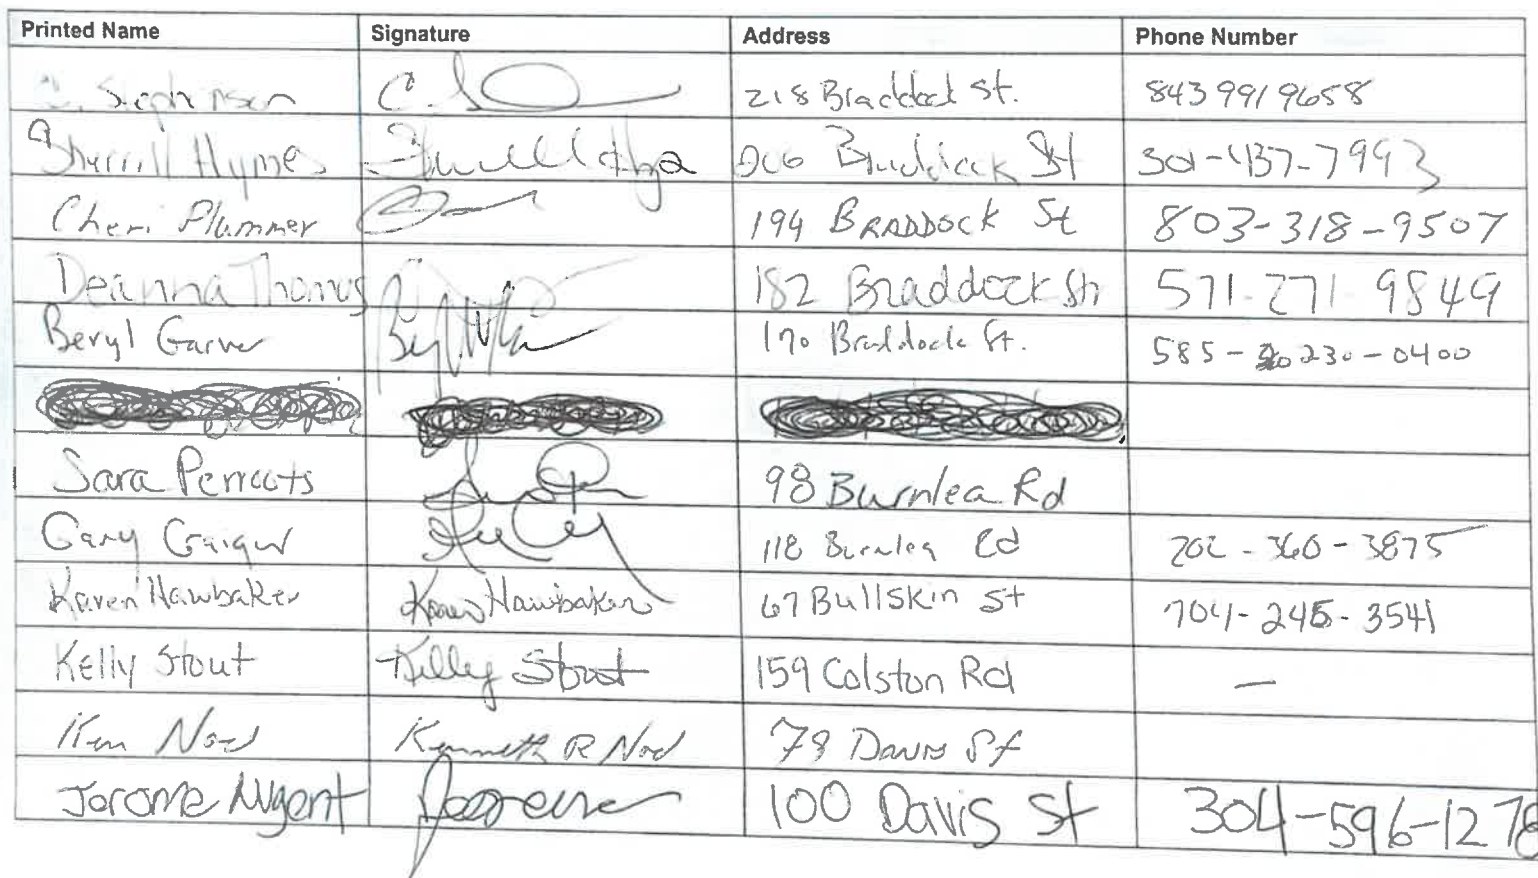 Printed Name Signature Address Phone Number
C. 218 Braddock St. 8439919658
Sherrill Hymes 206 Braddock St 301-437-7993
Cheri Plummer 194 BRADDOCK St 803-318-9507
Deanna Thomas 182 Braddock St 571-271-9849
Beryl Garver 170 Braddock St. 585-230-0400
Sara Perricots 98 Burnlea Rd
Gary 118 Burnlea Rd 202-360-3875
Karen Hawbaker Karen Hawbaker 67 Bullskin St 704-245-3541
Kelly Stout Kelly Stout 159 Colston Rd —
Ken Noel Kenneth R Noel 78 Davis St
Jerome Nugent 100 Davis St 304-596-1278